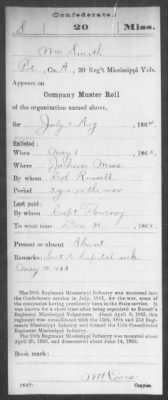 Confederate.
S 20 Miss.
Wm Smith
Pvt, Co. A, 20 Reg't Mississippi Vols.
Appears on
Company Muster Roll
of the organization named above,
for July & Aug, 186
Enlisted:
When May 1, 186
Where Jackson Miss
By whom Col Russell
Period 3 yrs or the war
Last paid:
By whom Capt
To what time Dec 31, 186
Present or absent Absent
Remarks: Sent to hospital sick
May
The 20th Regiment Mississippi Infantry was mustered into
the Confederate service in July, 1861, for the war, some of
the companies having previously been in the State service. It
was known for a short time after being organized as Russell's
Regiment Mississippi Volunteers. About April 9, 1865, this
regiment was consolidated with the
Mississippi Infantry and formed the 15th Consolidated
Regiment Mississippi Infantry.
The 20th Regiment Mississippi Infantry was mounted about
April 1863, and dismounted about June 14, 1863.
Book mark:
(642)